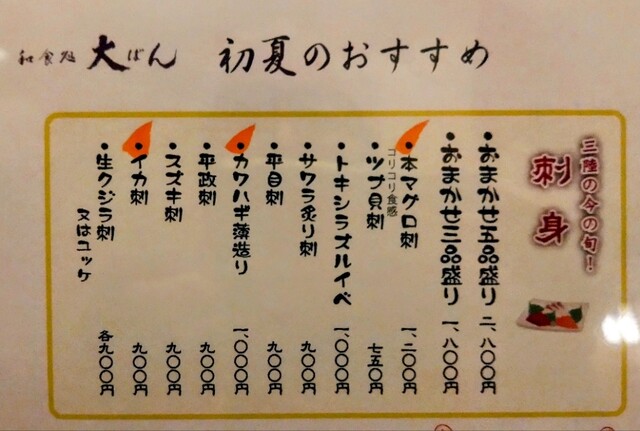 和食処 大ばん 初夏のおすすめ
三陸の今の旬!
刺身
・おまかせ五品盛り 二、八〇〇円
・おまかせ三品盛り 一、八〇〇円
・本マグロ刺 一、二〇〇円
コリコリ食感
・ツブ貝刺 七五〇円
・トキシラズルイベ 一、〇〇〇円
・サワラ炙り刺 九〇〇円
・平目刺 九〇〇円
・カワハギ薄造り 一、〇〇〇円
・平政刺 九〇〇円
・スズキ刺 九〇〇円
・イカ刺 九〇〇円
・生クジラ刺
又はユッケ 各九〇〇円